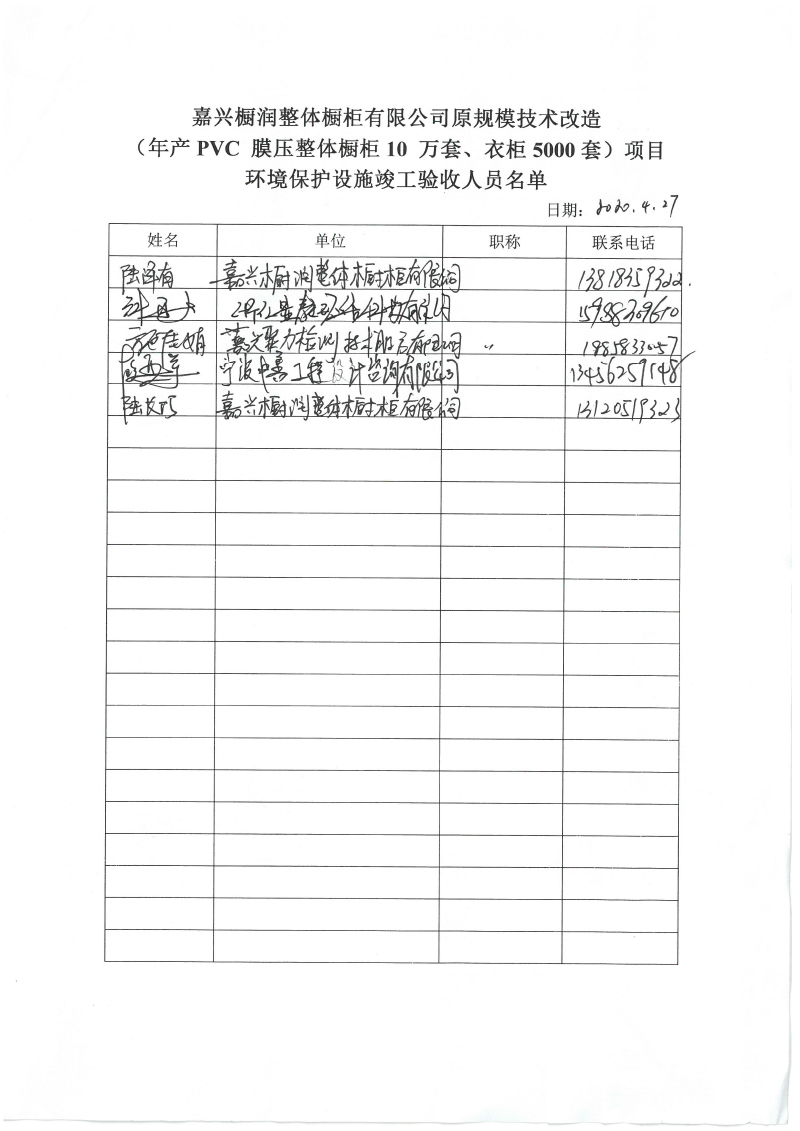 嘉兴橱润整体橱柜有限公司原规模技术改造
（年产 PVC 膜压整体橱柜 10 万套、衣柜 5000 套）项目
环境保护设施竣工验收人员名单
日期：2020.4.27
姓名 单位 职称 联系电话
陆泽南 嘉兴橱润整体橱柜有限公司 13818359322
有限公司
嘉兴聚力检测技术服务有限公司 〃
宁波中善工程设计咨询有限公司 13456259148
陆文巧 嘉兴橱润整体橱柜有限公司 13120519323